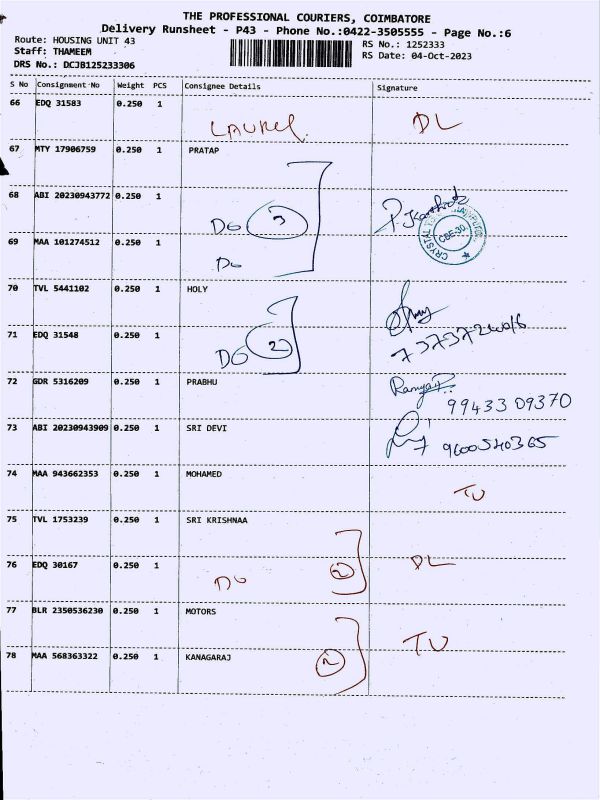 THE PROFESSIONAL COURIERS, COIMBATORE
Delivery Runsheet - P43 - Phone No.:0422-3505555 - Page No.:6
Route: HOUSING UNIT 43
RS No.: 1252333
Staff: THAMEEM
RS Date: 04-Oct-2023
DRS No.: DCJB125233306
S No Consignment No Weight PCS Consignee Details Signature
66 EDQ 31583 0.250 1
LAUREL DL
67 MTY 17906759 0.250 1 PRATAP
68 ABI 20230943772 0.250 1
Do 3
CRYSTAL CBE-30
69 MAA 101274512 0.250 1
Do
70 TVL 5441102 0.250 1 HOLY
71 EDQ 31548 0.250 1
DO 2
72 GDR 5316209 0.250 1 PRABHU
99433 09370
73 ABI 20230943909 0.250 1 SRI DEVI
9600540365
74 MAA 943662353 0.250 1 MOHAMED
TU
75 TVL 1753239 0.250 1 SRI KRISHNAA
76 EDQ 30167 0.250 1
Do 2 DL
77 BLR 2350536230 0.250 1 MOTORS
TU
78 MAA 568363322 0.250 1 KANAGARAJ
2